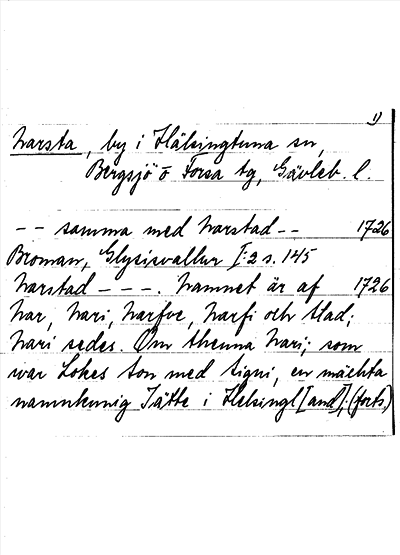 1)
Narsta, by i Hälsingtuna sn,
Bergsjö o Forsa tg, Gävleb. l.
-- samma med Narstad -- 1726
Broman, Glysisvallur I:2 s. 145
Narstad - - -. Namnet är af 1726
Nar, Nari, Narfve, Narfi och Stad;
Nari sedes. Om thenna Nari; som
war Lokes son med Signi, en mächta
namnkunnig Jätte i Helsingl[and]; (forts.)